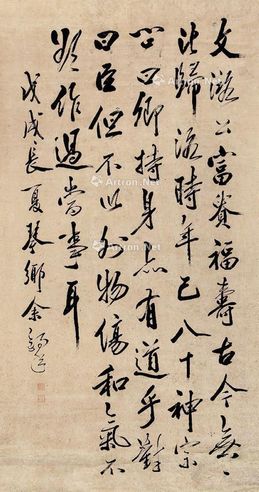 文潞公富貴福壽古今無
比歸洛時年已八十神宗
問曰卿持身亦有道乎對
曰臣但不以外物傷和氣不
作過當事耳
戊戌長夏琴鄉余
Artron.Net
Artron.Net
Artron.Net
Artron.Net